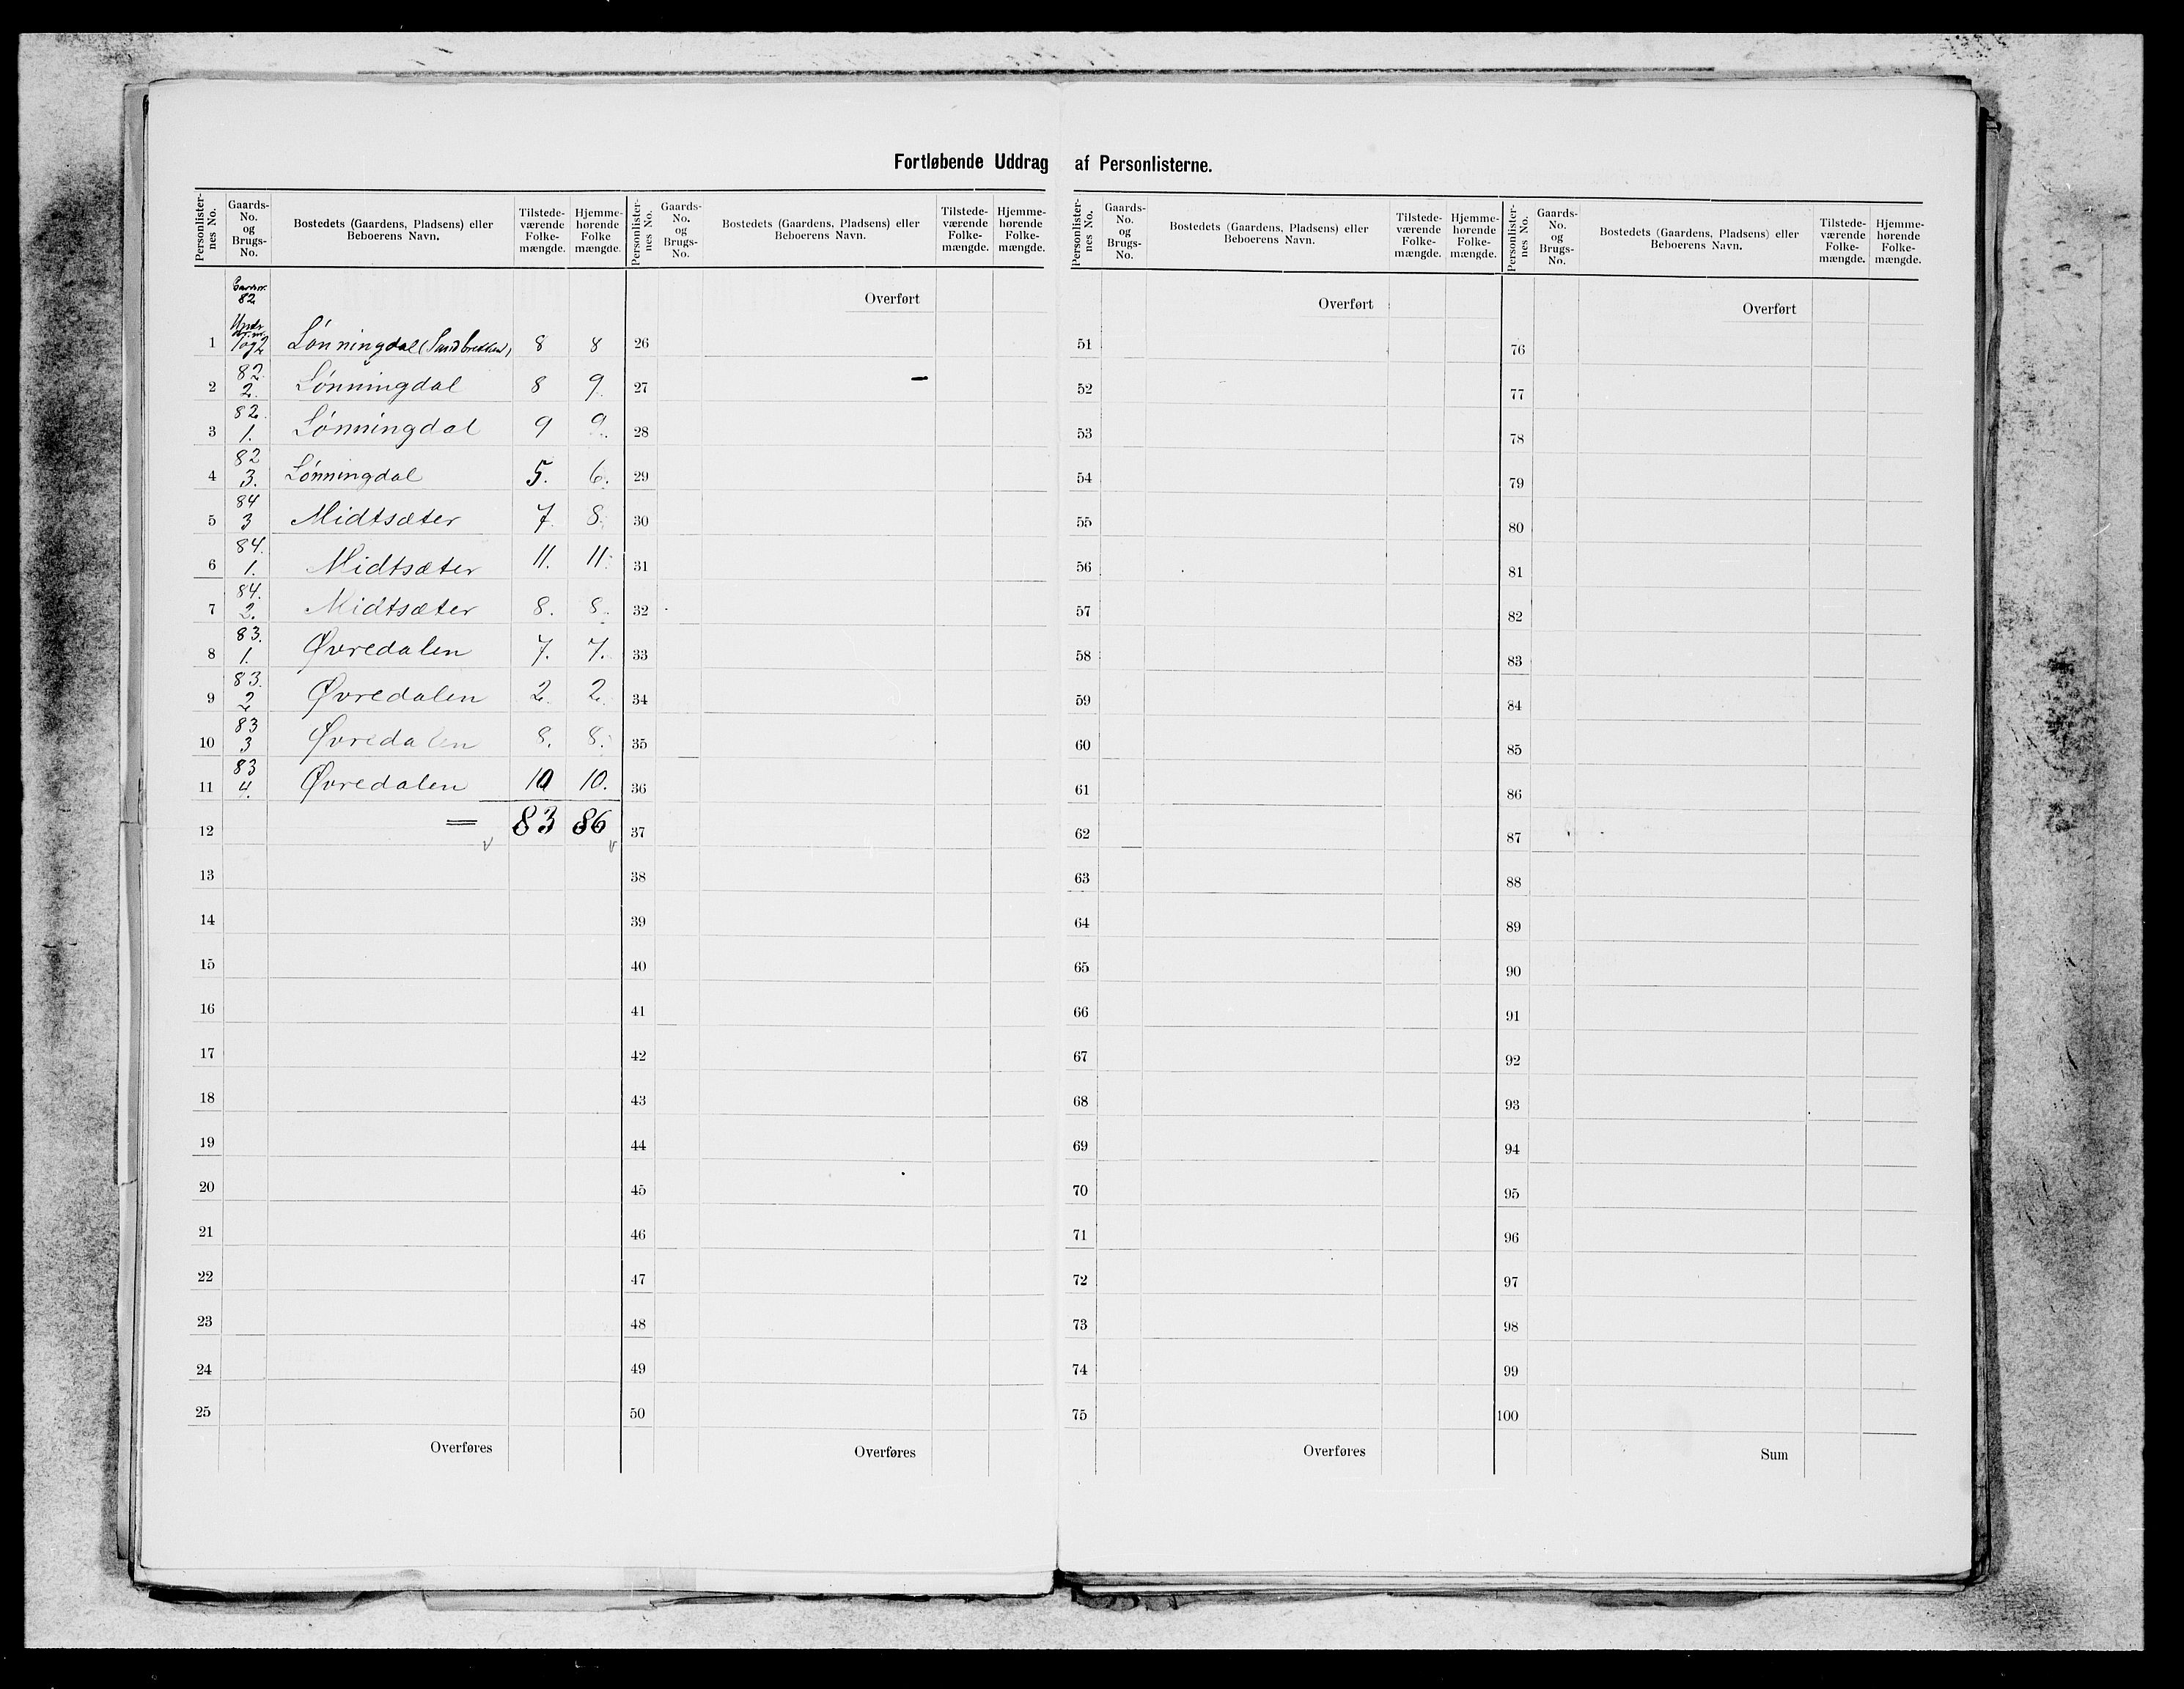 Fortløbende Uddrag af Personlisterne.
Personlister-nes No. | Gaards-No. og Brugs-No. | Bostedets (Gaardens, Pladsens) eller Beboerens Navn. | Tilstede-værende Folke-mængde. | Hjemme-hørende Folke mængde.
82
1 og 2
1 Lønningdal (Sandbrekken) 8 8
2 82. 2. Lønningdal 8 9.
3 82. 1. Lønningdal 9 9.
4 82 3. Lønningdal 5. 6.
5 84 3 Midtsæter 7. 8.
6 84. 1. Midtsæter 11. 11.
7 84. 2. Midtsæter 8. 8.
8 83. 1. Øvredalen 7. 7.
9 83. 2 Øvredalen 2. 2.
10 83 3 Øvredalen 8. 8.
11 83 4. Øvredalen 10 10.
12 = 83 86
13
14
15
16
17
18
19
20
21
22
23
24
25
Overføres
Personlister-nes No. | Gaards-No. og Brugs-No. | Bostedets (Gaardens, Pladsens) eller Beboerens Navn. | Tilstede-værende Folke-mængde. | Hjemme-hørende Folke-mængde.
Overført
26
27
28
29
30
31
32
33
34
35
36
37
38
39
40
41
42
43
44
45
46
47
48
49
50
Overføres
Personlister-nes No. | Gaards-No. og Brugs-No. | Bostedets (Gaardens, Pladsens) eller Beboerens Navn. | Tilstede-værende Folke-mængde. | Hjemme-hørende Folke-mængde.
Overført
51
52
53
54
55
56
57
58
59
60
61
62
63
64
65
66
67
68
69
70
71
72
73
74
75
Overføres
Personlister-nes No. | Gaards-No. og Brugs-No. | Bostedets (Gaardens, Pladsens) eller Beboerens Navn. | Tilstede-værende Folke-mængde. | Hjemme-hørende Folke-mængde.
Overført
76
77
78
79
80
81
82
83
84
85
86
87
88
89
90
91
92
93
94
95
96
97
98
99
100
Sum